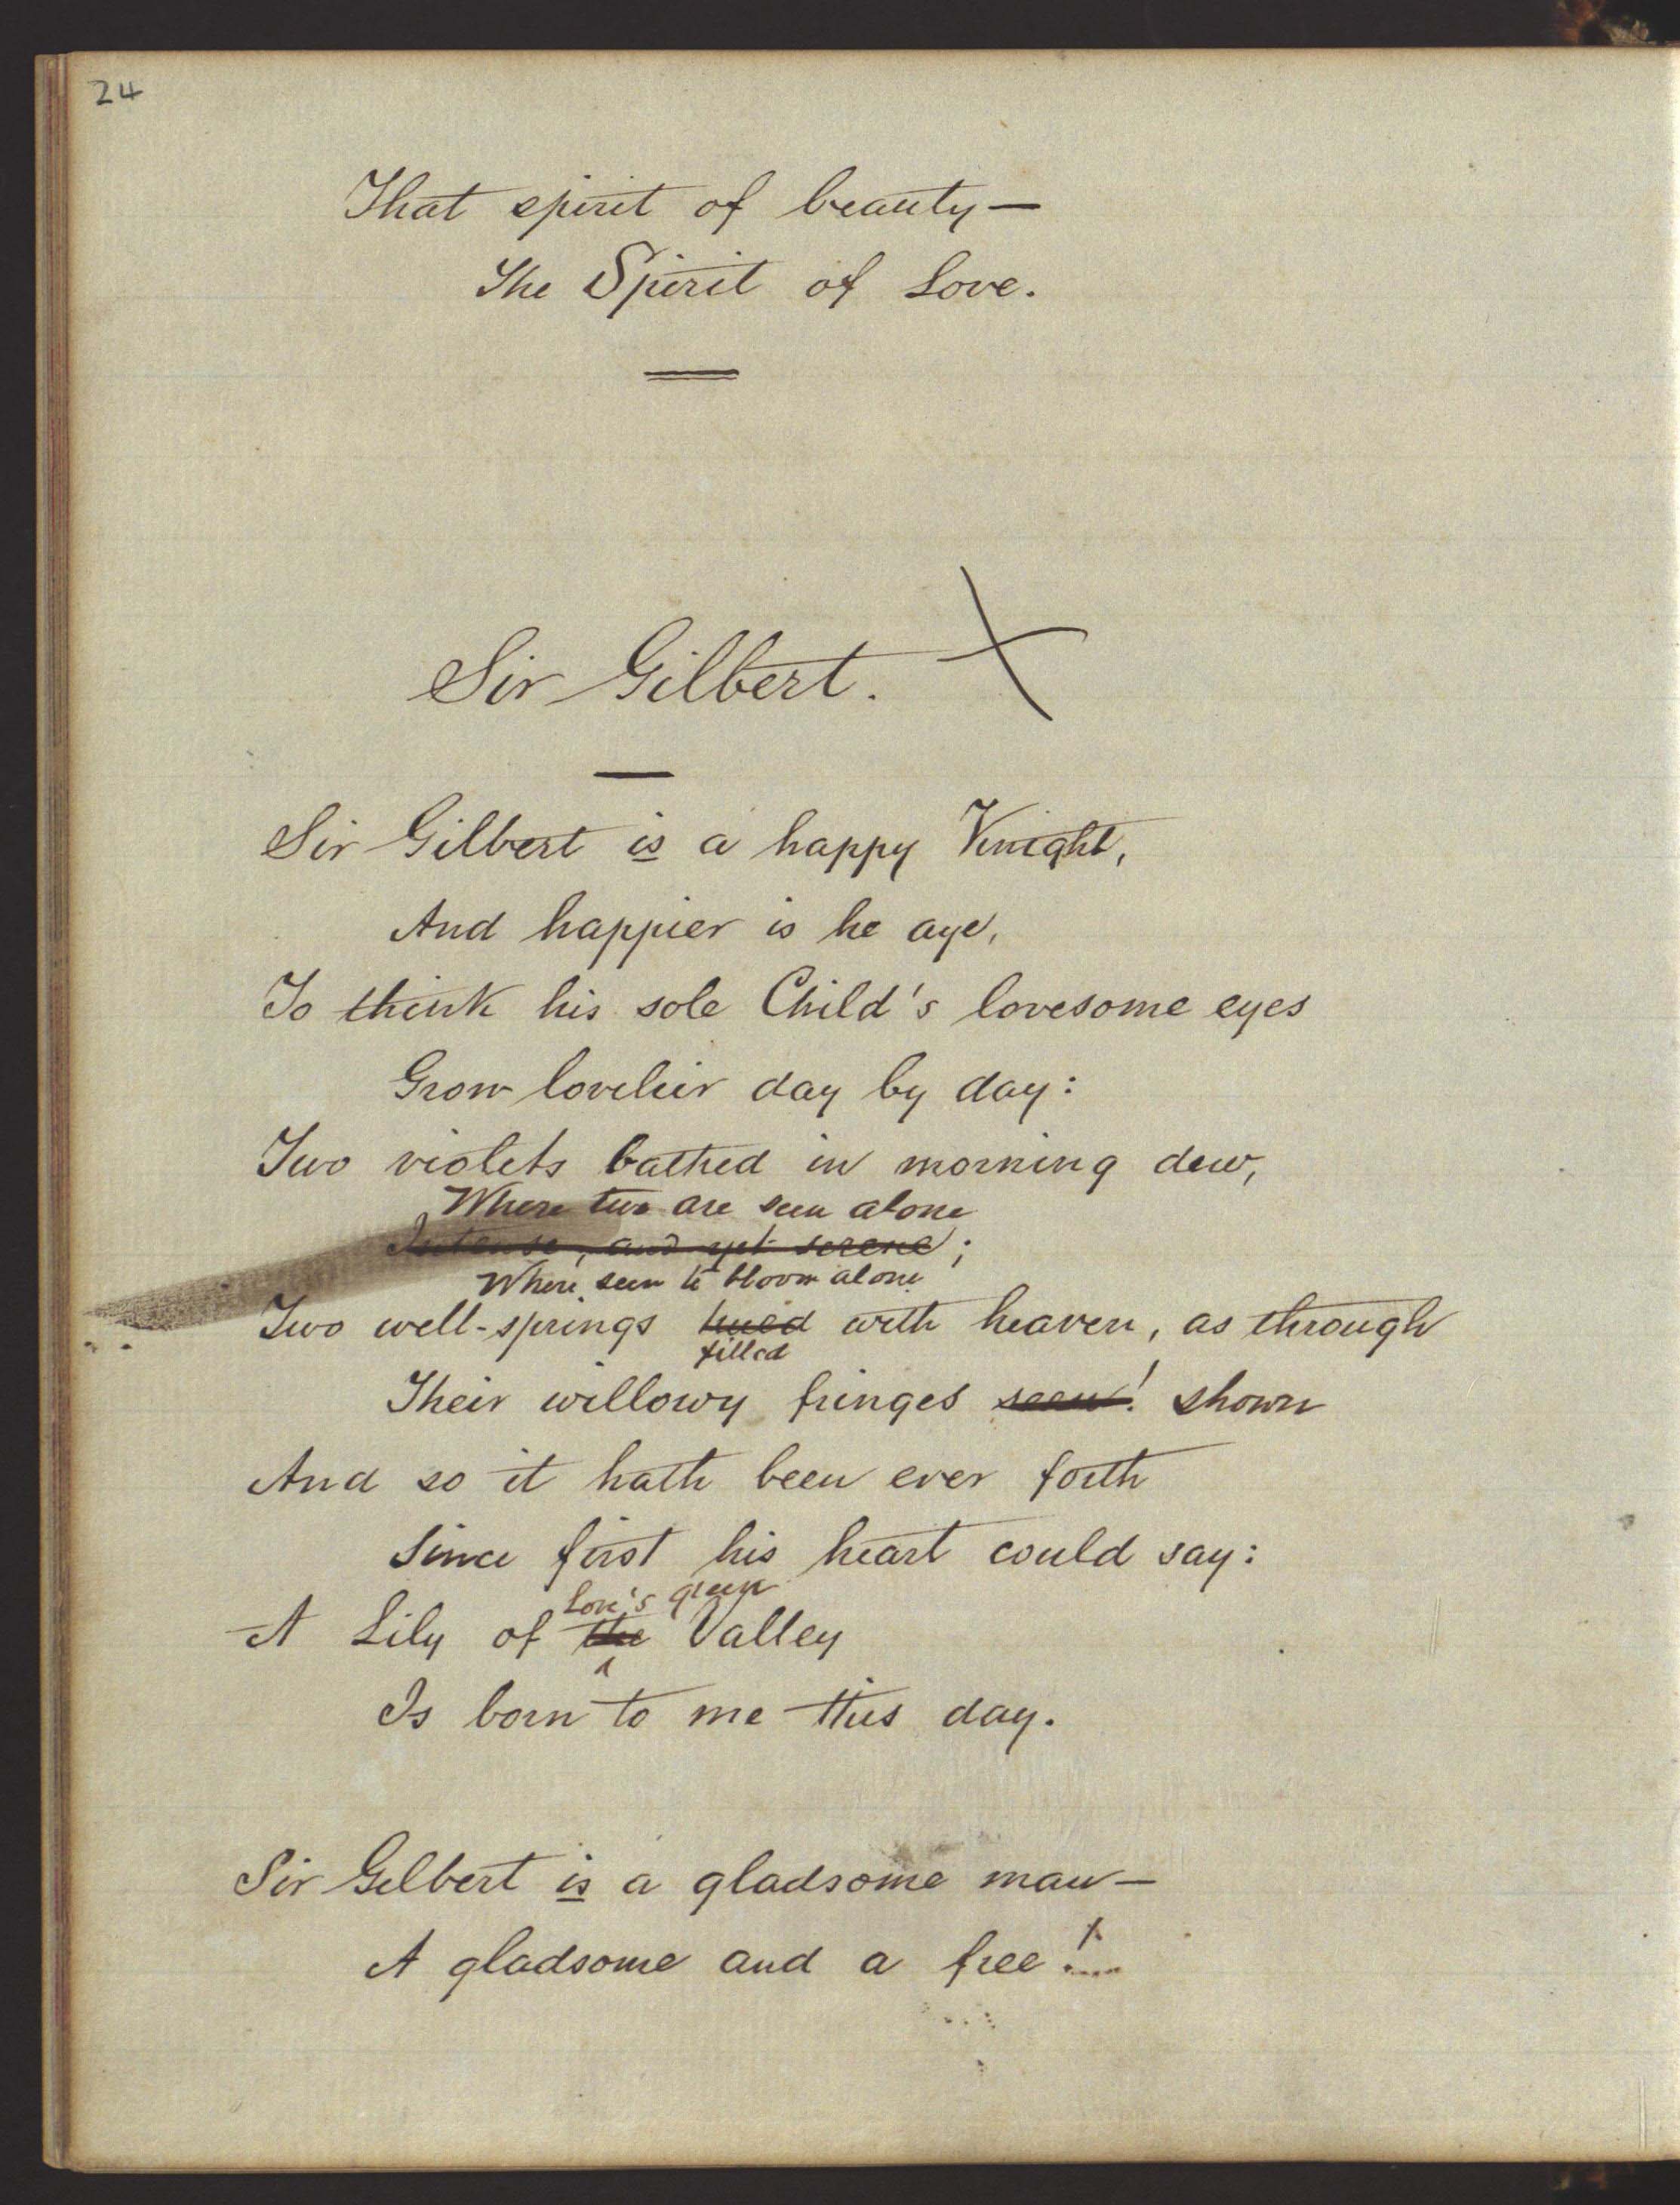 24
That spirit of beauty—
The Spirit of Love.
Sir Gilbert.
Sir Gilbert is a happy Knight,
And happier is he aye,
To think his sole Child's lovesome eyes
Grow lovelier day by day:
Two violets bathed in morning dew,
Where two are seen alone
Intense, and yet serene;
Where seen to bloom alone
Two well-springs hued with heaven, as through
filled
Their willowy fringes seen! shown
And so it hath been ever forth
Since first his heart could say:
Love's green
A Lily of the Valley
Is born to me this day.
Sir Gilbert is a gladsome man—
A gladsome and a free